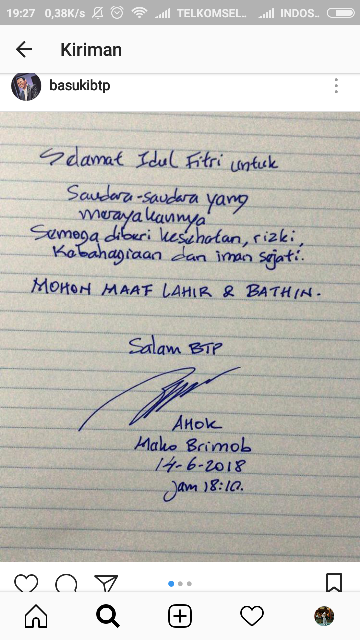 19:27 0,38K/s TELKOMSEL.. INDOS..
Kiriman
basukibtp
Selamat Idul Fitri untuk
Saudara-saudara yang
merayakannya
Semoga diberi kesehatan, rizki,
Kebahagiaan dan iman sejati.
MOHON MAAF LAHIR & BATHIN.
Salam BTP
AHOK
Mako Brimob
14-6-2018
Jam 18:10.